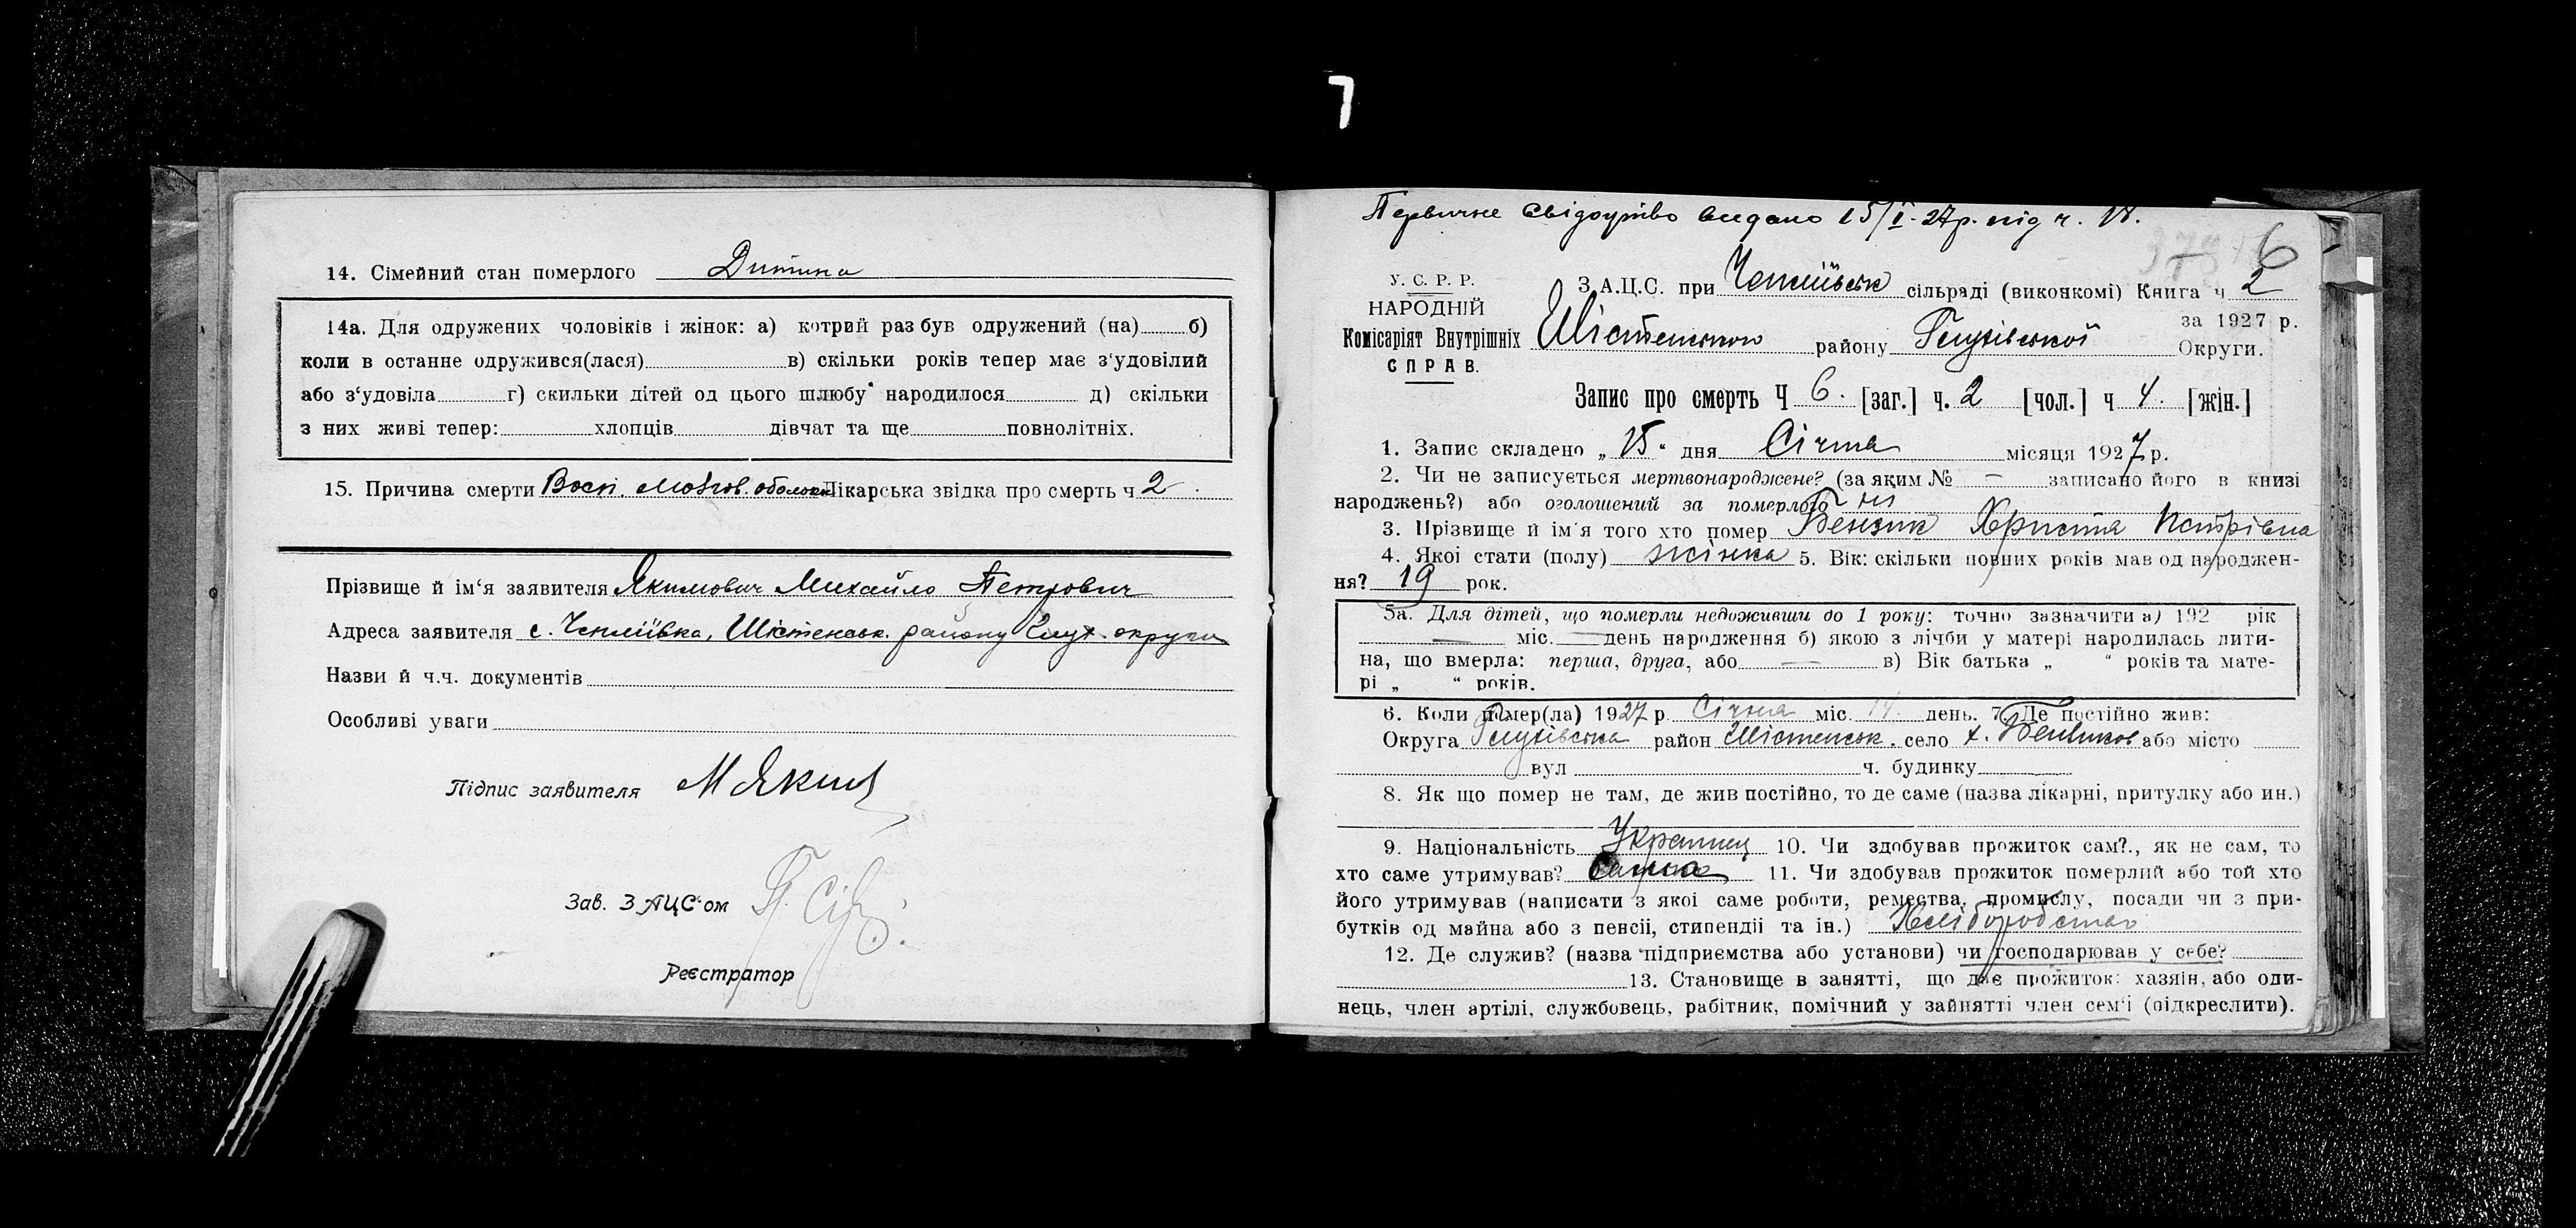 7
14. Сімейний стан померлого Дитина
14а. Для одружених чоловіків і жінок: а) котрий раз був одружений (на) б)
коли в останне одружився(лася) в) скільки років тепер має з'удовілий
або з'удовіла г) скильки дітей од цього шлюбу народилося д) скільки
з них живі тепер: хлопців дівчат та ще повнолітніх.
15. Причина смерти Восп. мозгов. оболочк Лікарська звідка про смерть ч 2
Прізвище й ім'я заявителя Якимович Михайло Петрович
Адреса заявителя с. Чепліївка, Шістенськ. району Глух. округи
Назви й ч.ч. документів
Особливі уваги
Підпис заявителя М Яким
Зав. ЗАЦС'ом
Реєстратор
Первичне свідоцтво видано 15/I-27р. під ч.
6
У. С. Р. Р.
З.А.Ц.С. при Чепліївськ сільраді (виконкомі) Книга ч 2
НАРОДНІЙ
за 1927 р.
Комісаріят Внутрішніх Шістенського району Глухівської Округи.
СПРАВ.
Запис про смерть Ч 6. [заг.] ч. 2 [чол.] ч 4. [жін.]
1. Запис складено „15“ дня Січня місяця 1927 р.
2. Чи не записується мертвонароджене? (за яким № — записано його в книзі
народжень?) або оголошений за померлого ні
3. Прізвище й ім'я того хто помер Христя Петрівна
4. Якоі стати (полу) жінка 5. Вік: скільки повних років мав од народжен-
ня? 19 рок.
5а. Для дітей, що померли недоживши до 1 року: точно зазначити а) 192 рік
— міс. — день народження б) якою з лічби у матері народилась дити-
на, що вмерла: перша, друга, або — в) Вік батька „ “ років та мате-
рі „ “ років.
6. Коли помер(ла) 1927 р. Січня міс. 14 день. 7. Де постійно жив:
Округа Глухівська район Шістенськ. село х. або місто
вул ч. будинку
8. Як що помер не там, де жив постійно, то де саме (назва лікарні, притулку або ин.)
9. Національність Українц 10. Чи здобував прожиток сам?., як не сам, то
хто саме утримував? Сама 11. Чи здобував прожиток померлий або той хто
його утримував (написати з якоі саме роботи, ремества, промислу, посади чи з при-
бутків од майна або з пенсіі, стипендіі та ін.) Хліборобство
12. Де служив? (назва підприємства або установи) чи господарював у себе?
13. Становище в занятті, що дає прожиток: хазяін, або оди-
нець, член артілі, службовець, рабітник, помічний у зайнятті член сем'і (підкреслити).